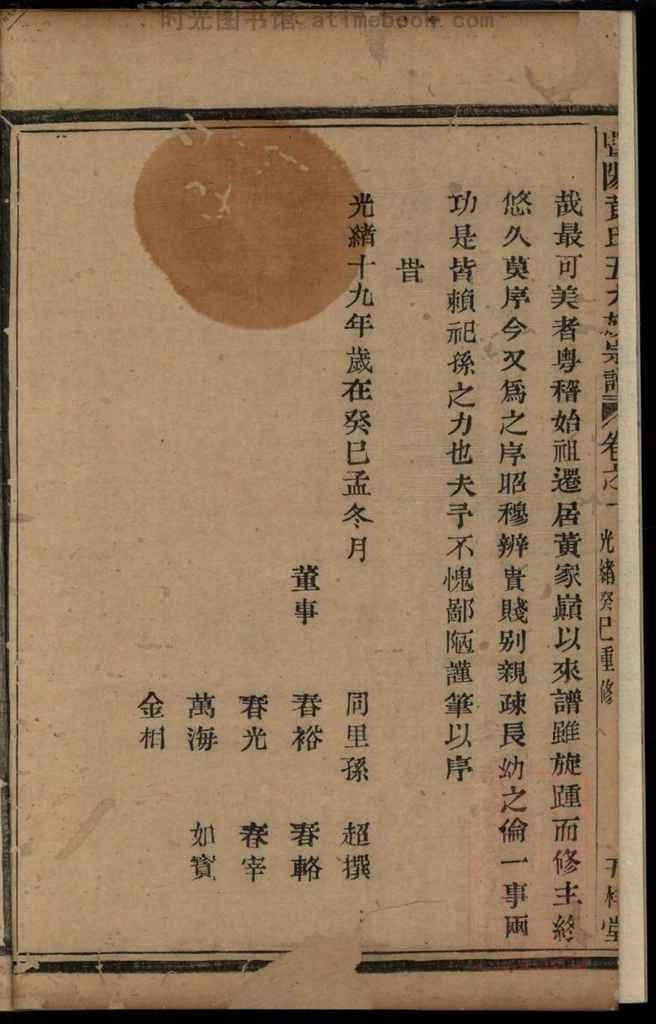 时光图书馆 atimebook.com
暨陽黃氏五大族宗譜 卷之一 光緒癸巳重修
哉最可美者粵稽始祖遷居黃家巔以來譜雖旋踵而修主終
悠久莫序今又為之序昭穆辨貴賤别親疎長幼之倫一事兩
功是皆賴祀孫之力也夫予不愧鄙陋謹筆以序
旹
光緒十九年歲在癸巳孟冬月
同里孫 超撰
董事 春裕 春輅
春光 春宰
萬海 如寶
金相